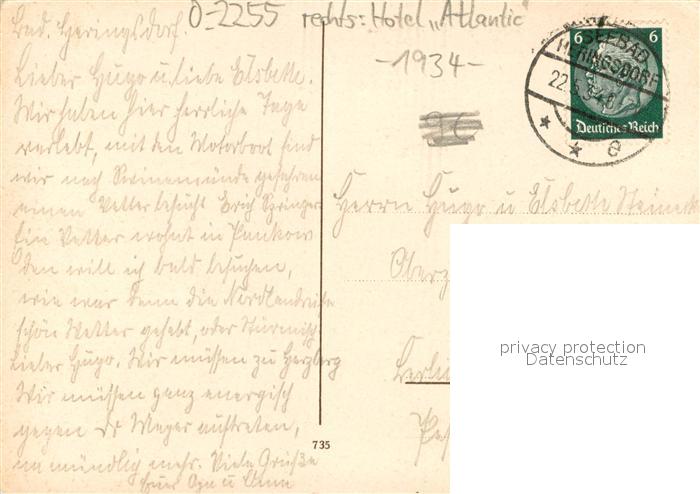 O-2255 rechts: Hotel „Atlantic"
-1934-
6 6
SEEBAD
HERINGSDORF
22.5.34.
Deutsches Reich
* * e
Bad. Heringsdorf.
Lieber Hugo u. liebe Elsbette.
Wir haben hier herrliche Tage
verlebt, mit den Motorboot sind
wir nach Swinemünde gefahren
einen Vetter besucht Erich Springer
Ein Vetter wohnt in Pankow
den will ich bald besuchen,
wie war denn die Nordlandreise
schön Wetter gehabt, oder Stürmisch
Lieber Hugo. Wir müssen zu Herzberg
Wir müssen ganz energisch
gegen Dr Meyer auftreten,
nu mündlich mehr. Viele Grüße
Euer Opa u
Herrn Hugo u Elsbette
735
privacy protection
Datenschutz